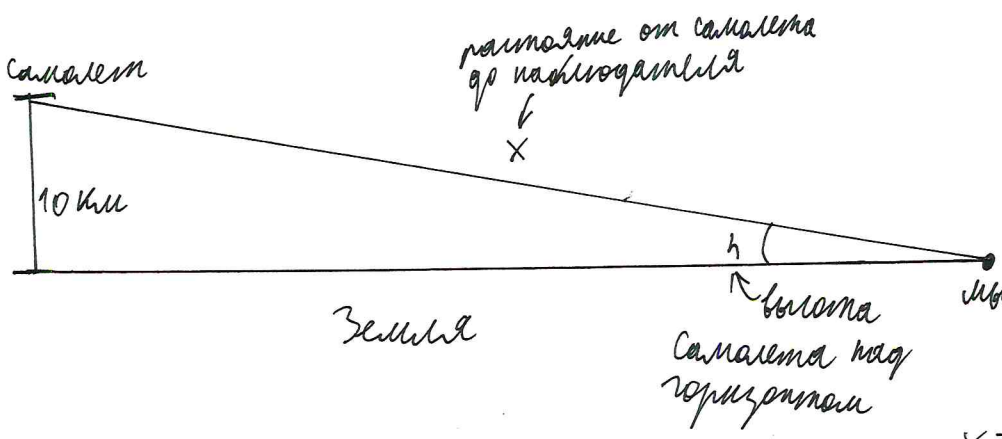 самолет
растояние от самолета
до наблюдателя
X
10 км
h
мы
высота
Земля
Самолета над
горизонтом